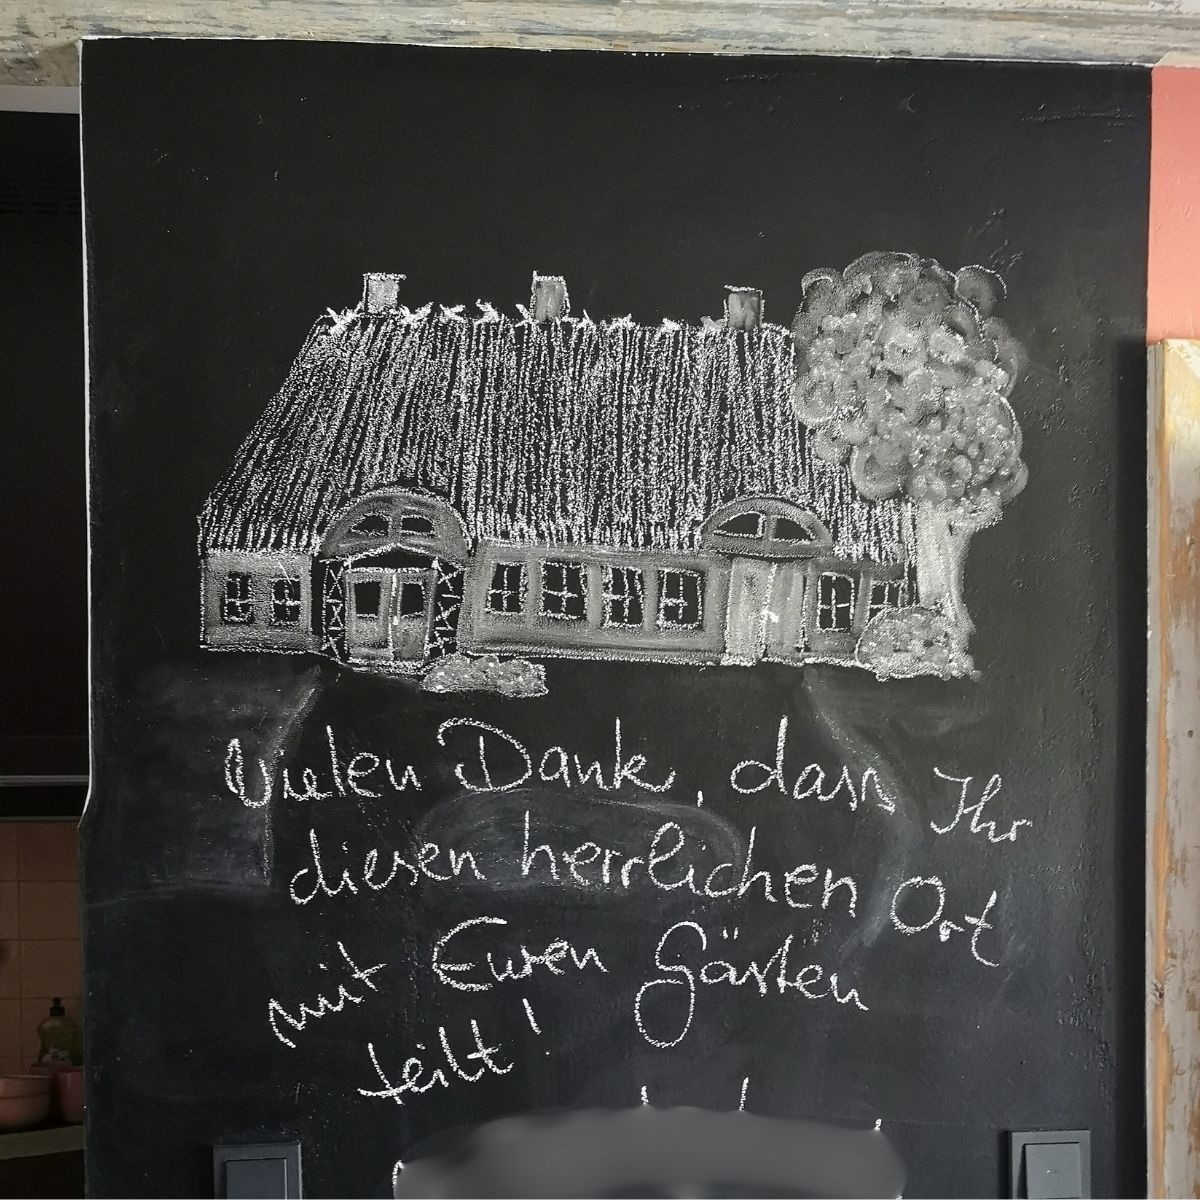 Vielen Dank, dass Ihr
diesen herrlichen Ort
mit Euren Gästen
teilt!